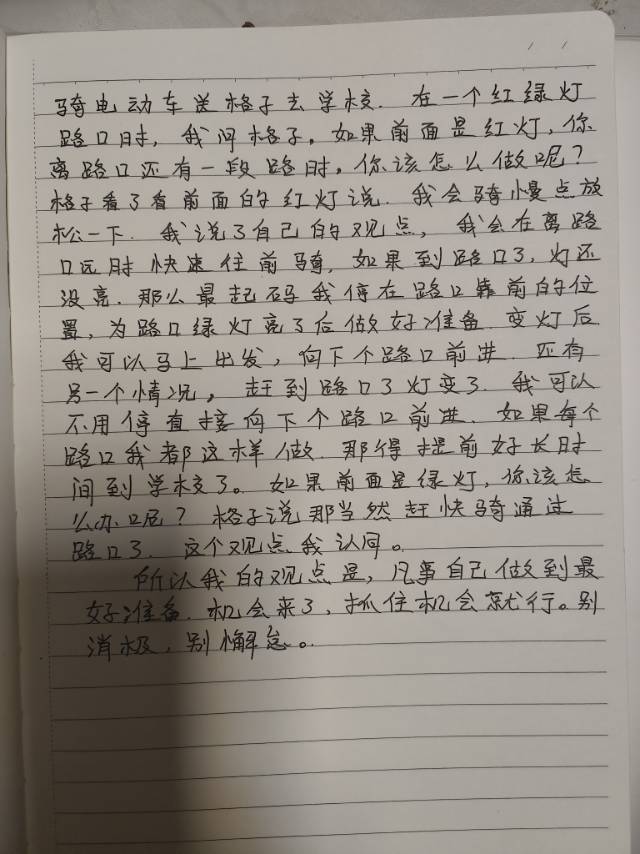 骑电动车送格子去学校. 在一个红绿灯
路口时, 我问格子, 如果前面是红灯, 你
离路口还有一段路时, 你该怎么做呢?
格子看了看前面的红灯说. 我会骑慢点放
松一下. 我说了自己的观点, 我会在离路
口远时快速往前骑, 如果到路口了, 灯还
没亮. 那么最起码我停在路口靠前的位
置, 为路口绿灯亮了后做好准备. 变灯后
我可以马上出发, 向下个路口前进. 还有
另一个情况, 赶到路口了灯变了. 我可以
不用停直接向下个路口前进. 如果每个
路口我都这样做. 那得提前好长时
间到学校了。如果前面是绿灯, 你该怎
么办呢? 格子说那当然赶快骑通过
路口了. 这个观点我认同。
所以我的观点是, 凡事自己做到最
好准备. 机会来了, 抓住机会就行。别
消极, 别懈怠。